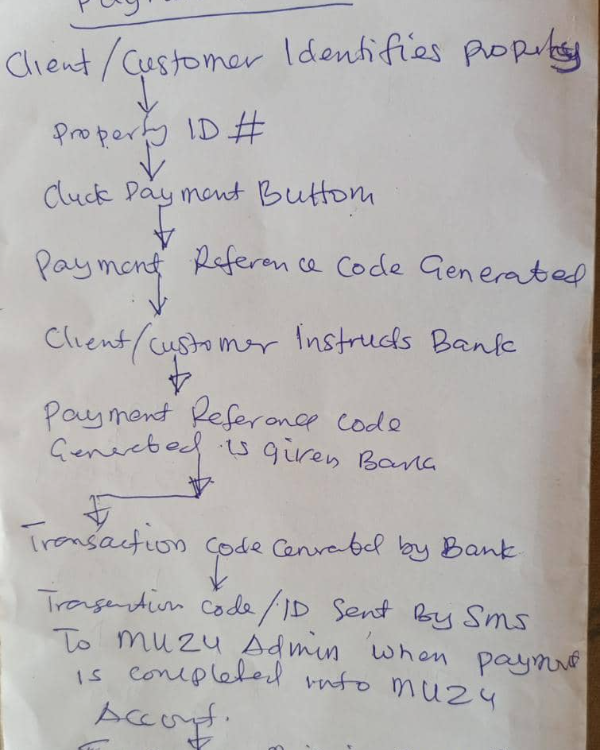 Client/Customer Identifies property
Property ID #
Cluck Payment Buttom
Payment Reference Code Generated
Client/customer Instructs Bank
Payment Reference code
Generated is given Bank
Transaction Code Generated by Bank
Transaction code/ID Sent By Sms
To MUZU Admin when payment
is completed into MUZU
Account.